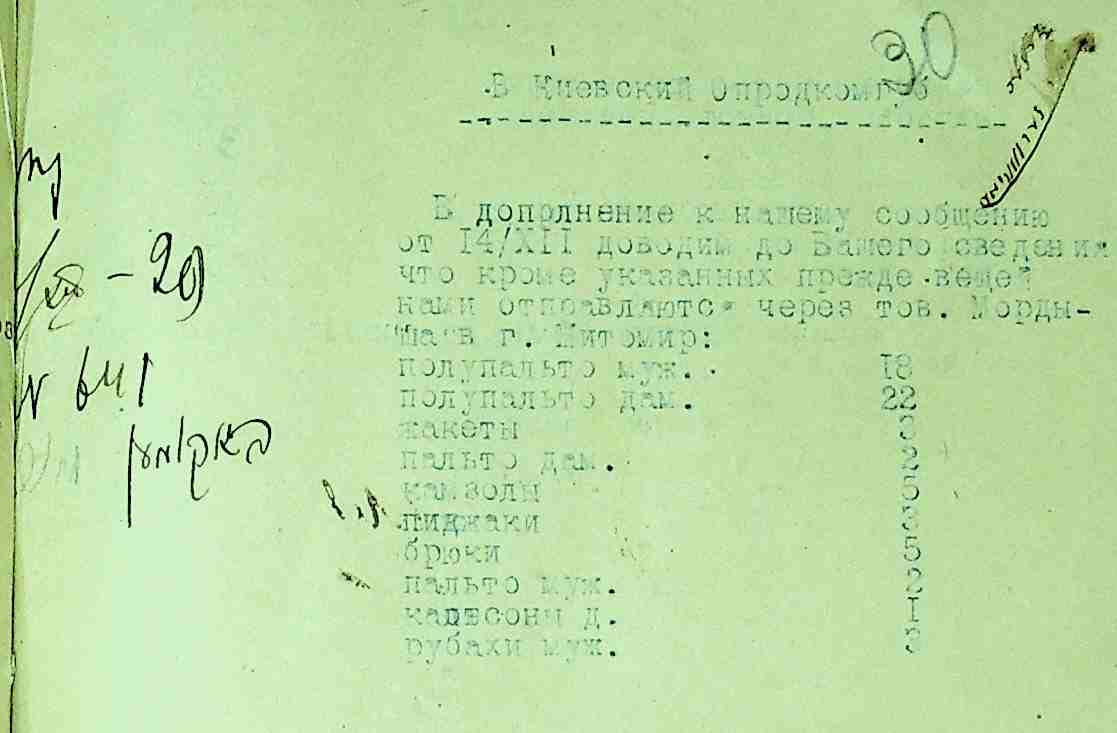 30
В Киевский Опродкомгуб
В дополнение к нашему сообщению
от I4/XII доводим до Вашего сведения
что кроме указанных прежде вещей
нами отправляются через тов. Морды-
ша в г. Житомир:
полупальто муж. 18
полупальто дам. 22
жакеты 3
пальто дам. 2
камзолы 5
пиджаки 3
брюки 5
пальто муж. 2
кальсоны д. I
рубахи муж.
/XII – 20
N 641
באקומען